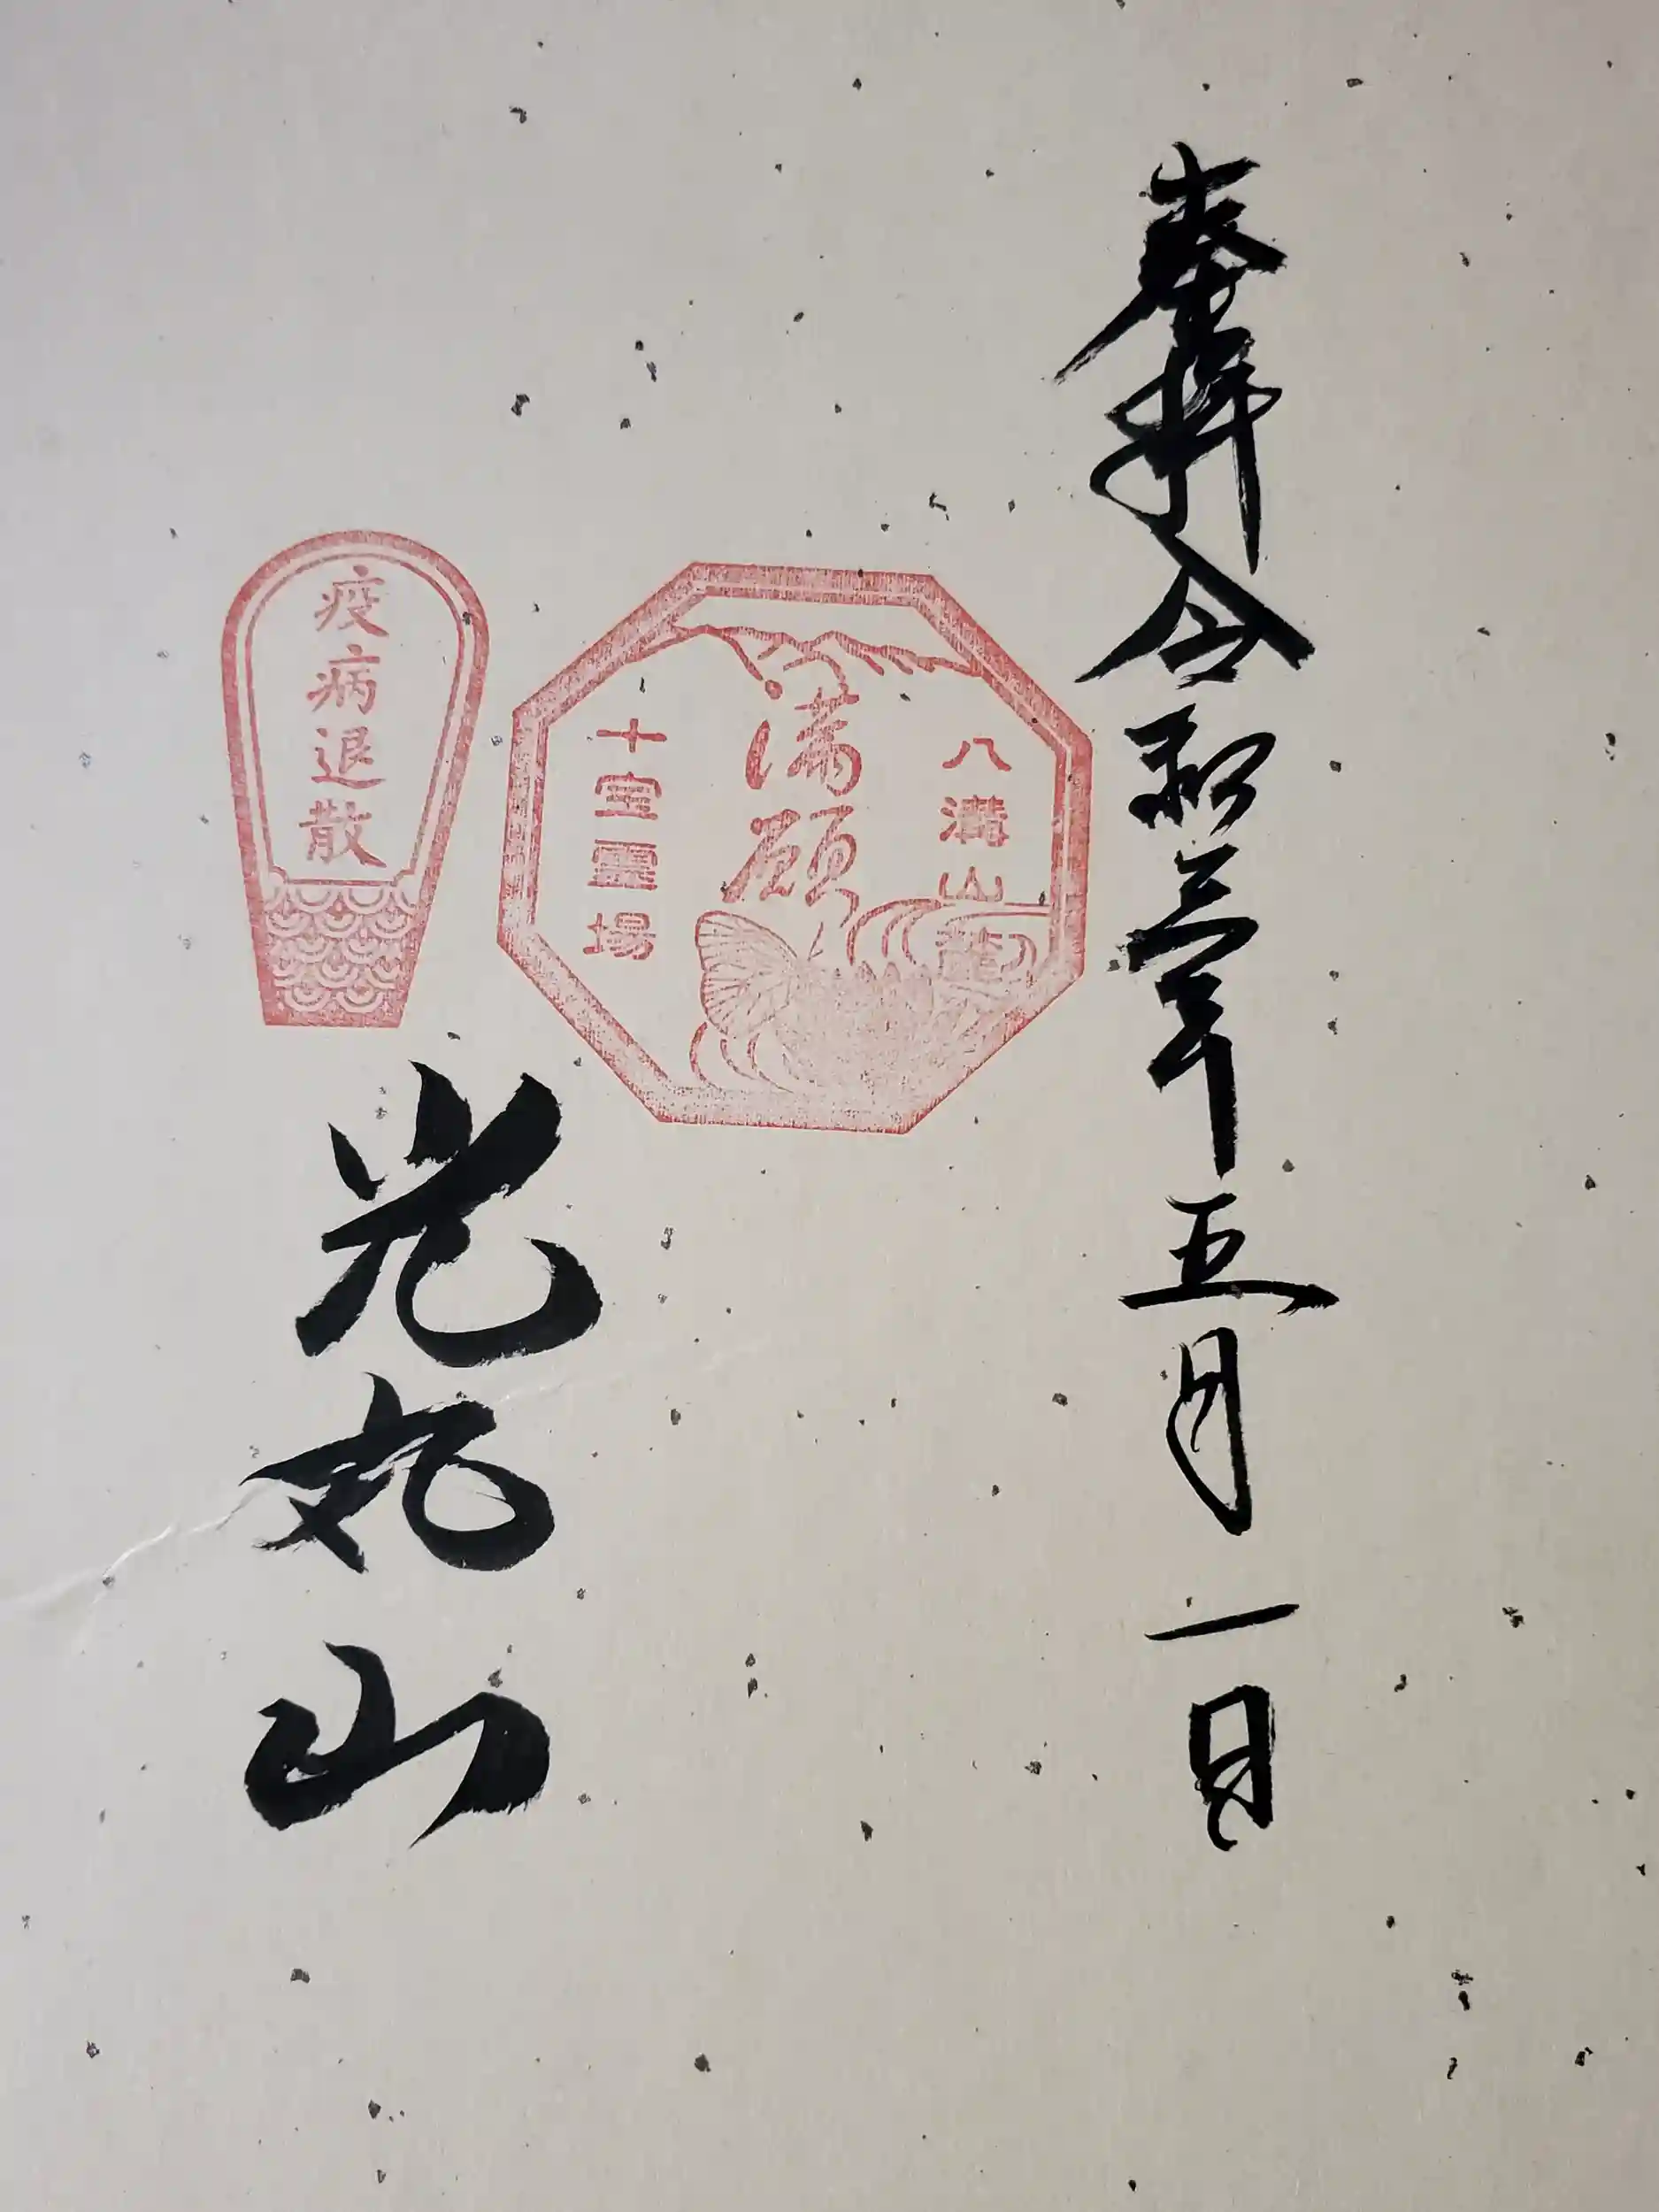 奉拝 令和三年五月一日
八溝山龍
満願
十宝霊場
疫病退散
光丸山